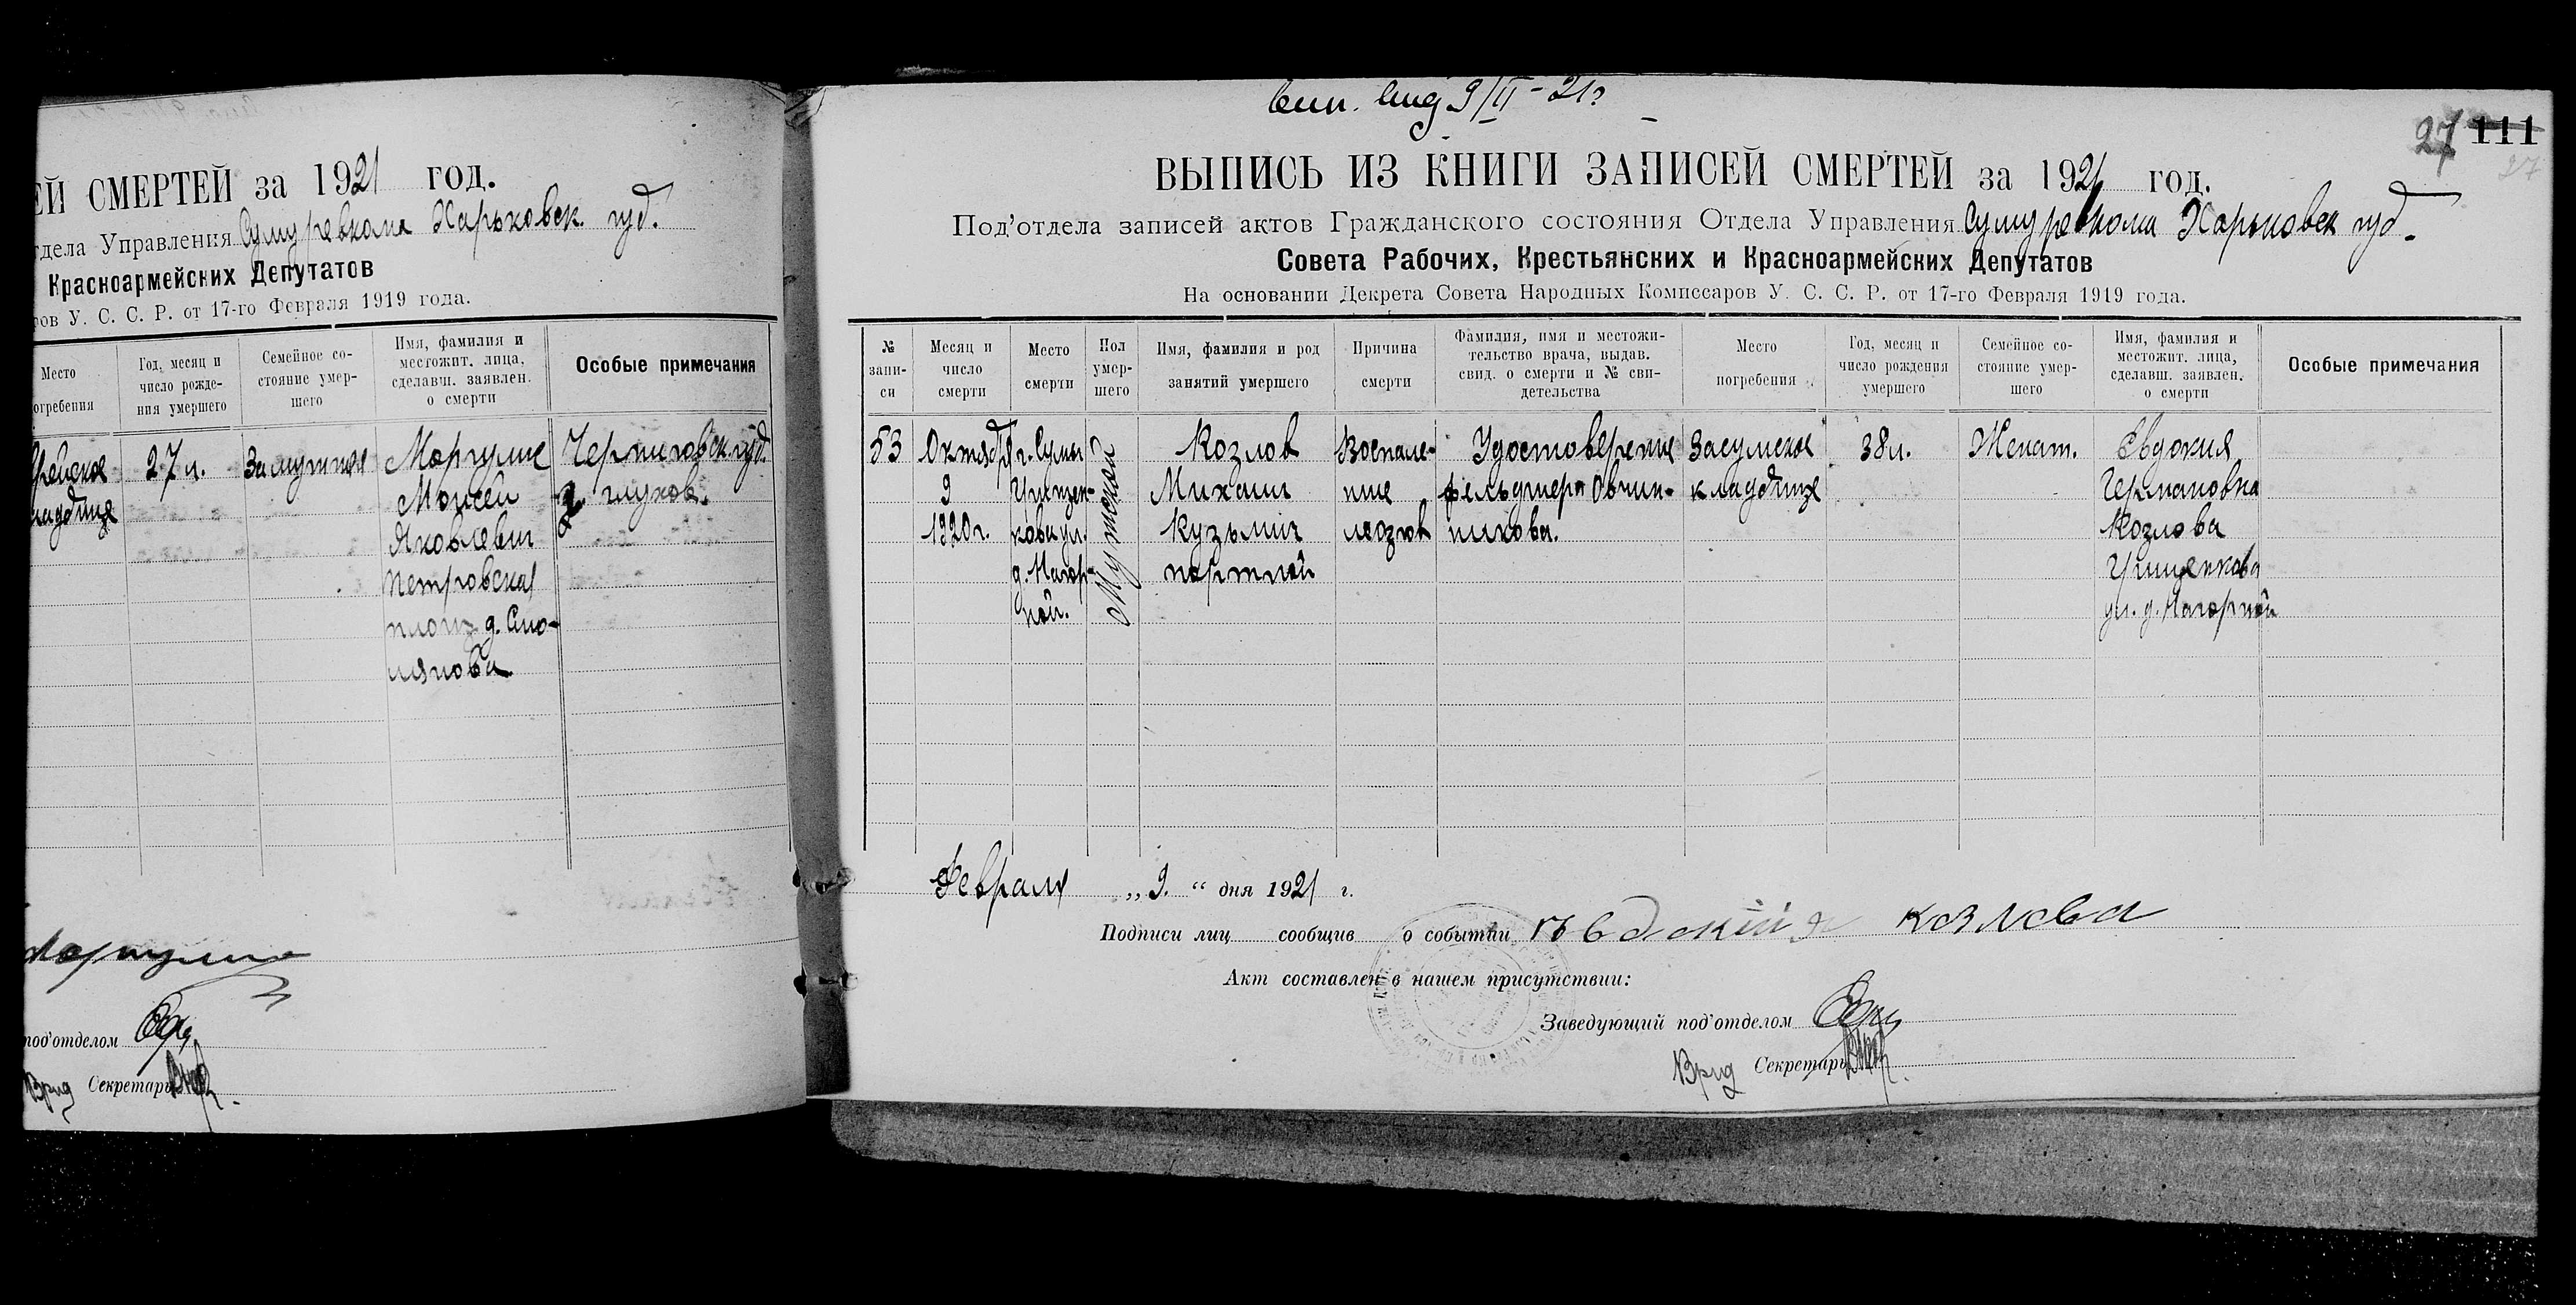 ЕЙ СМЕРТЕЙ за 1921 год.
тдела Управления Сумуревкома Харьковск. губ.
Красноармейских Депутатов
ров У. С. С. Р. от 17-го Февраля 1919 года.
Место
огребения
Год, месяц и
число рожде-
ния умершего
Семейное со-
стояние умер-
шего
Имя, фамилия и
местожит. лица,
сделавш. заявлен.
о смерти
Особые примечания
врейское
кладбище
27 л.
Замужняя
Маргулис
Моисей
Яковлевич
Петровская
площ. д. Смо-
лянова
Черниговск. губ.
г. Глухов.
Маргулис
под'отделом
Врид Секретарь
Вып. выд 9/II-21г
27 111
27
ВЫПИСЬ ИЗ КНИГИ ЗАПИСЕЙ СМЕРТЕЙ за 1921 год.
Под'отдела записей актов Гражданского состояния Отдела Управления Сумуревкома Харьковск губ.
Совета Рабочих, Крестьянских и Красноармейских Депутатов
На основании Декрета Совета Народных Комиссаров У. С. С. Р. от 17-го Февраля 1919 года.
№
запи-
си
Месяц и
число
смерти
Место
смерти
Пол
умер-
шего
Имя, фамилия и род
занятий умершего
Причина
смерти
Фамилия, имя и местожи-
тельство врача, выдав.
свид. о смерти и № сви-
детельства
Место
погребения
Год, месяц и
число рождения
умершего
Семейное со-
стояние умер-
шего
Имя, фамилия и
местожит. лица,
сделавш. заявлен.
о смерти
Особые примечания
53
Октября
9
1920 г.
г. Сумы
Грищен-
кова ул.
д. Нагор-
ной.
Мужской
Козлов
Михаил
Кузьмич
портной
Воспале-
ние
мозгов
Удостоверение
фельдшера Овчин-
никова.
Засумское
кладбище
38 л.
Женат.
Евдокия
Германовна
Козлова
Грищенкова
ул. д. Нагорной
Февраля „ 9. “ дня 1921 г.
Подписи лиц сообщив о событии Евдокийя козлова
Акт составлен в нашем присутствии:
Заведующий под'отделом
Врид Секретарь